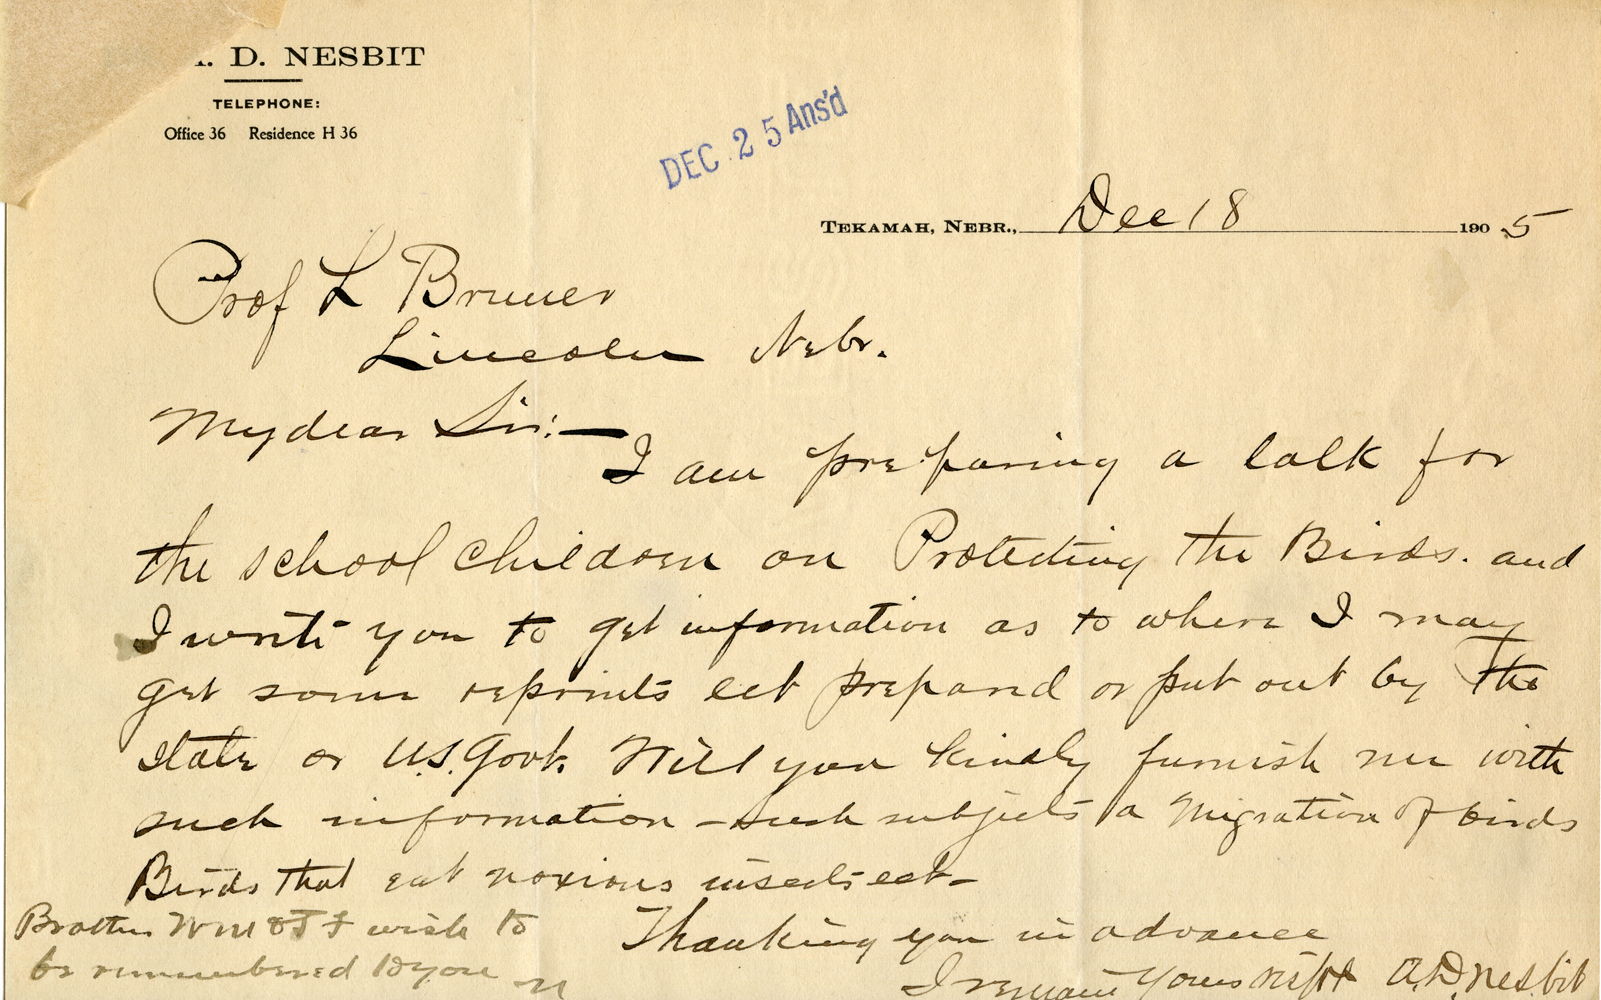 . D. NESBIT
TELEPHONE:
Office 36 Residence H 36
DEC 25 Ans'd
TEKAMAH, NEBR., Dec 18 1905
Prof L Bruner
Lincoln Nebr.
My dear Sir:—
I am preparing a talk for
the school children on Protecting the Birds. and
I write you to get information as to where I may
get some reprints ect prepared or put out by the
state or U.S. Govt. Will you kindly furnish me with
such information – such subjects a Migration of birds
Birds that eat noxious insects ect –
Thanking you in advance
I remain Yours A.D. Nesbit
Brother Wm & I wish to
be remembered to you